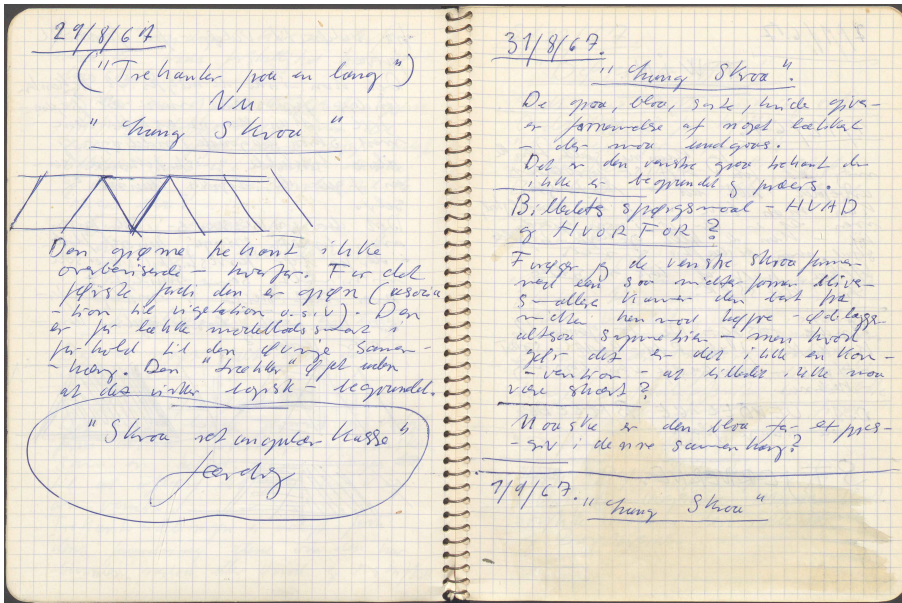 29/8/67
("Trekanter paa en lang")
NU
"Lang Skraa"
Den grønne trekant ikke
overbevisende – hvorfor. For det
første fordi den er grøn (associa
-tion til vigetation o.s.v). Den
er for lække modelladssmart i
forhold til den øvrige samen-
-hæng. Den "trækker" øjet uden
at det virker logisk – begrundet.
"Skraa rektangulær Kasse"
færdig
31/8/67.
"Lang Skraa".
De graa, blaa, sorte, hvide giver
er fornemmelse af noget lækkert
– der maa undgaas.
Det er den venstre graa trekant der
ikke er begrundet og præcis.
Billedets spørgsmaal – HVAD
og HVORFOR?
Forøger jeg de venstre skraa former
med een saa midterformen bliver
smallere kommer den bort fra
midten hen mod højre – ødelægger
altsaa symmetrien – men hvad
gør det er det ikke en kon-
-vention – at billedet ikke maa
være skævt?
Maaske er den blaa for expres-
-siv i denne sammenhæng?
1/9/67. "Lang Skraa"